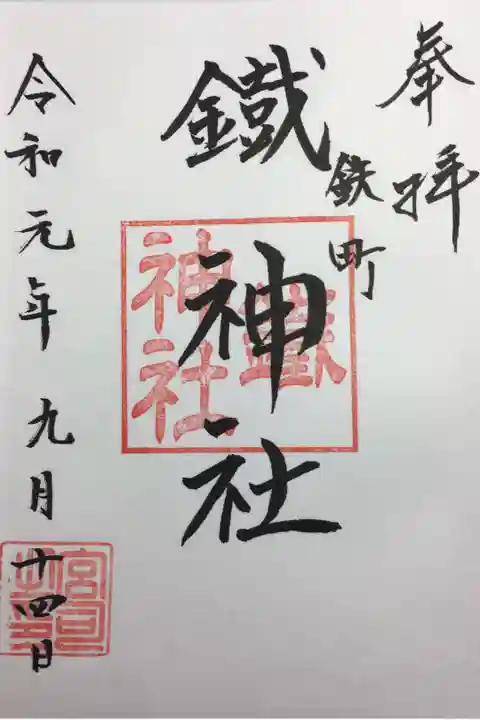 奉拝
鉄町
鐵神社
鐵
神社
令和元年九月十四日
宮司
之印